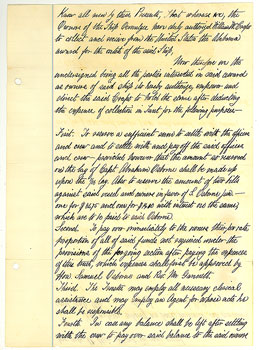 Know all men by these Presents, that whereas we, the
Owners of the Ship Ocmulgee have duly authorized William H.
to collect and receive from the United States the Alabama
award for the credit of the said Ship,
Now therefore we the
undersigned being all the parties interested in said award
as owners of said ship do hereby authorize, empower and
direct the said to hold the same after deducting
the expense of collection in Trust for the following purposes
First. To reserve a sufficient sum to settle with the officers
and crew and to settle with and pay off the said officers
and crew provided however that the amount so reserved
on the lay of Capt. Abraham Osborn shall be made up
upon the lay. Also to reserve the amount of two bills
against said vessel and owners in favor of S. Osborn Jun
one for and one for with interest on the same,
which are to be paid to said Osborn.
Second. To pay over immediately to the owners their pro rata
proportion of all of said funds not required under the
provisions of the foregoing section after paying the expenses
of this trust, which expenses shall first be approved by
Hon. Samuel Osborn and
Third. The Trustee may employ all necessary clerical
assistance and may employ an Agent for whose acts he
shall be responsible.
Fourth. In case any balance shall be left after settling
with the crew to pay over said balance to the said owners